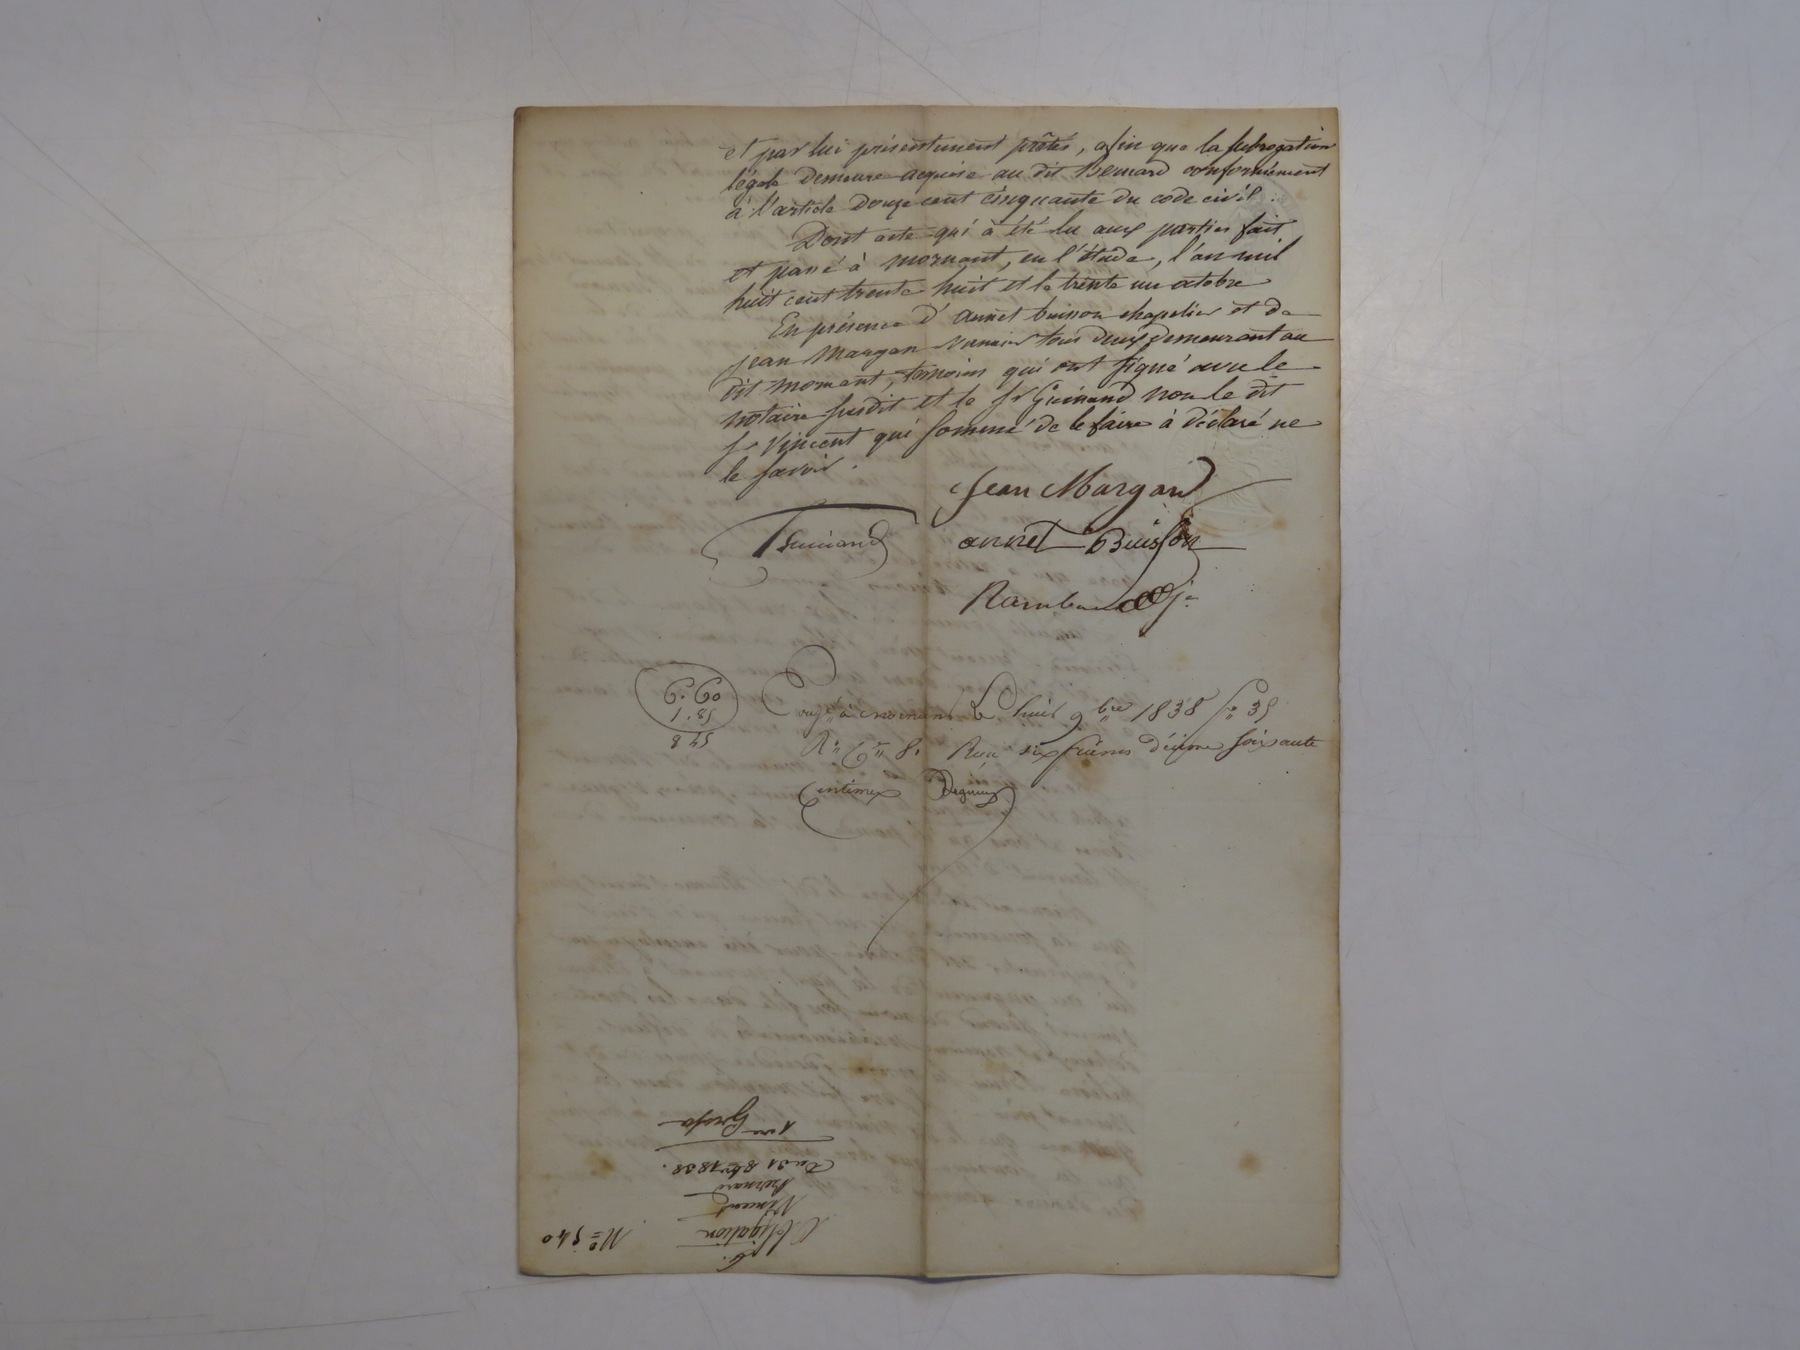 et par lui présentement prêtés, afin que la subrogation
légale demeure acquise au dit Bernard conformément
à l'article douze cent cinquante du code civil.
Dont acte qui à été lu aux parties fait
et passé à mornant, en l'étude, l'an mil
huit cent trente huit et le trente un octobre
En présence d'annet buisson chapelier et de
jean Margan tous deux demeurant au
dit mornant, témoins qui ont signé avec le
notaire susdit et le sr non le dit
sr Vincent qui sommé de le faire à déclaré ne
le savoir.
Jean Margand
annet Buisson
6.60
Enregté à mornant Le huit 9bre 1838 fo 35
Ro Reçu six francs décime soixante
Centimes
No 540
Obligation
Vincent
Bernard
Du 31 8bre 1838.
1ere Grosse